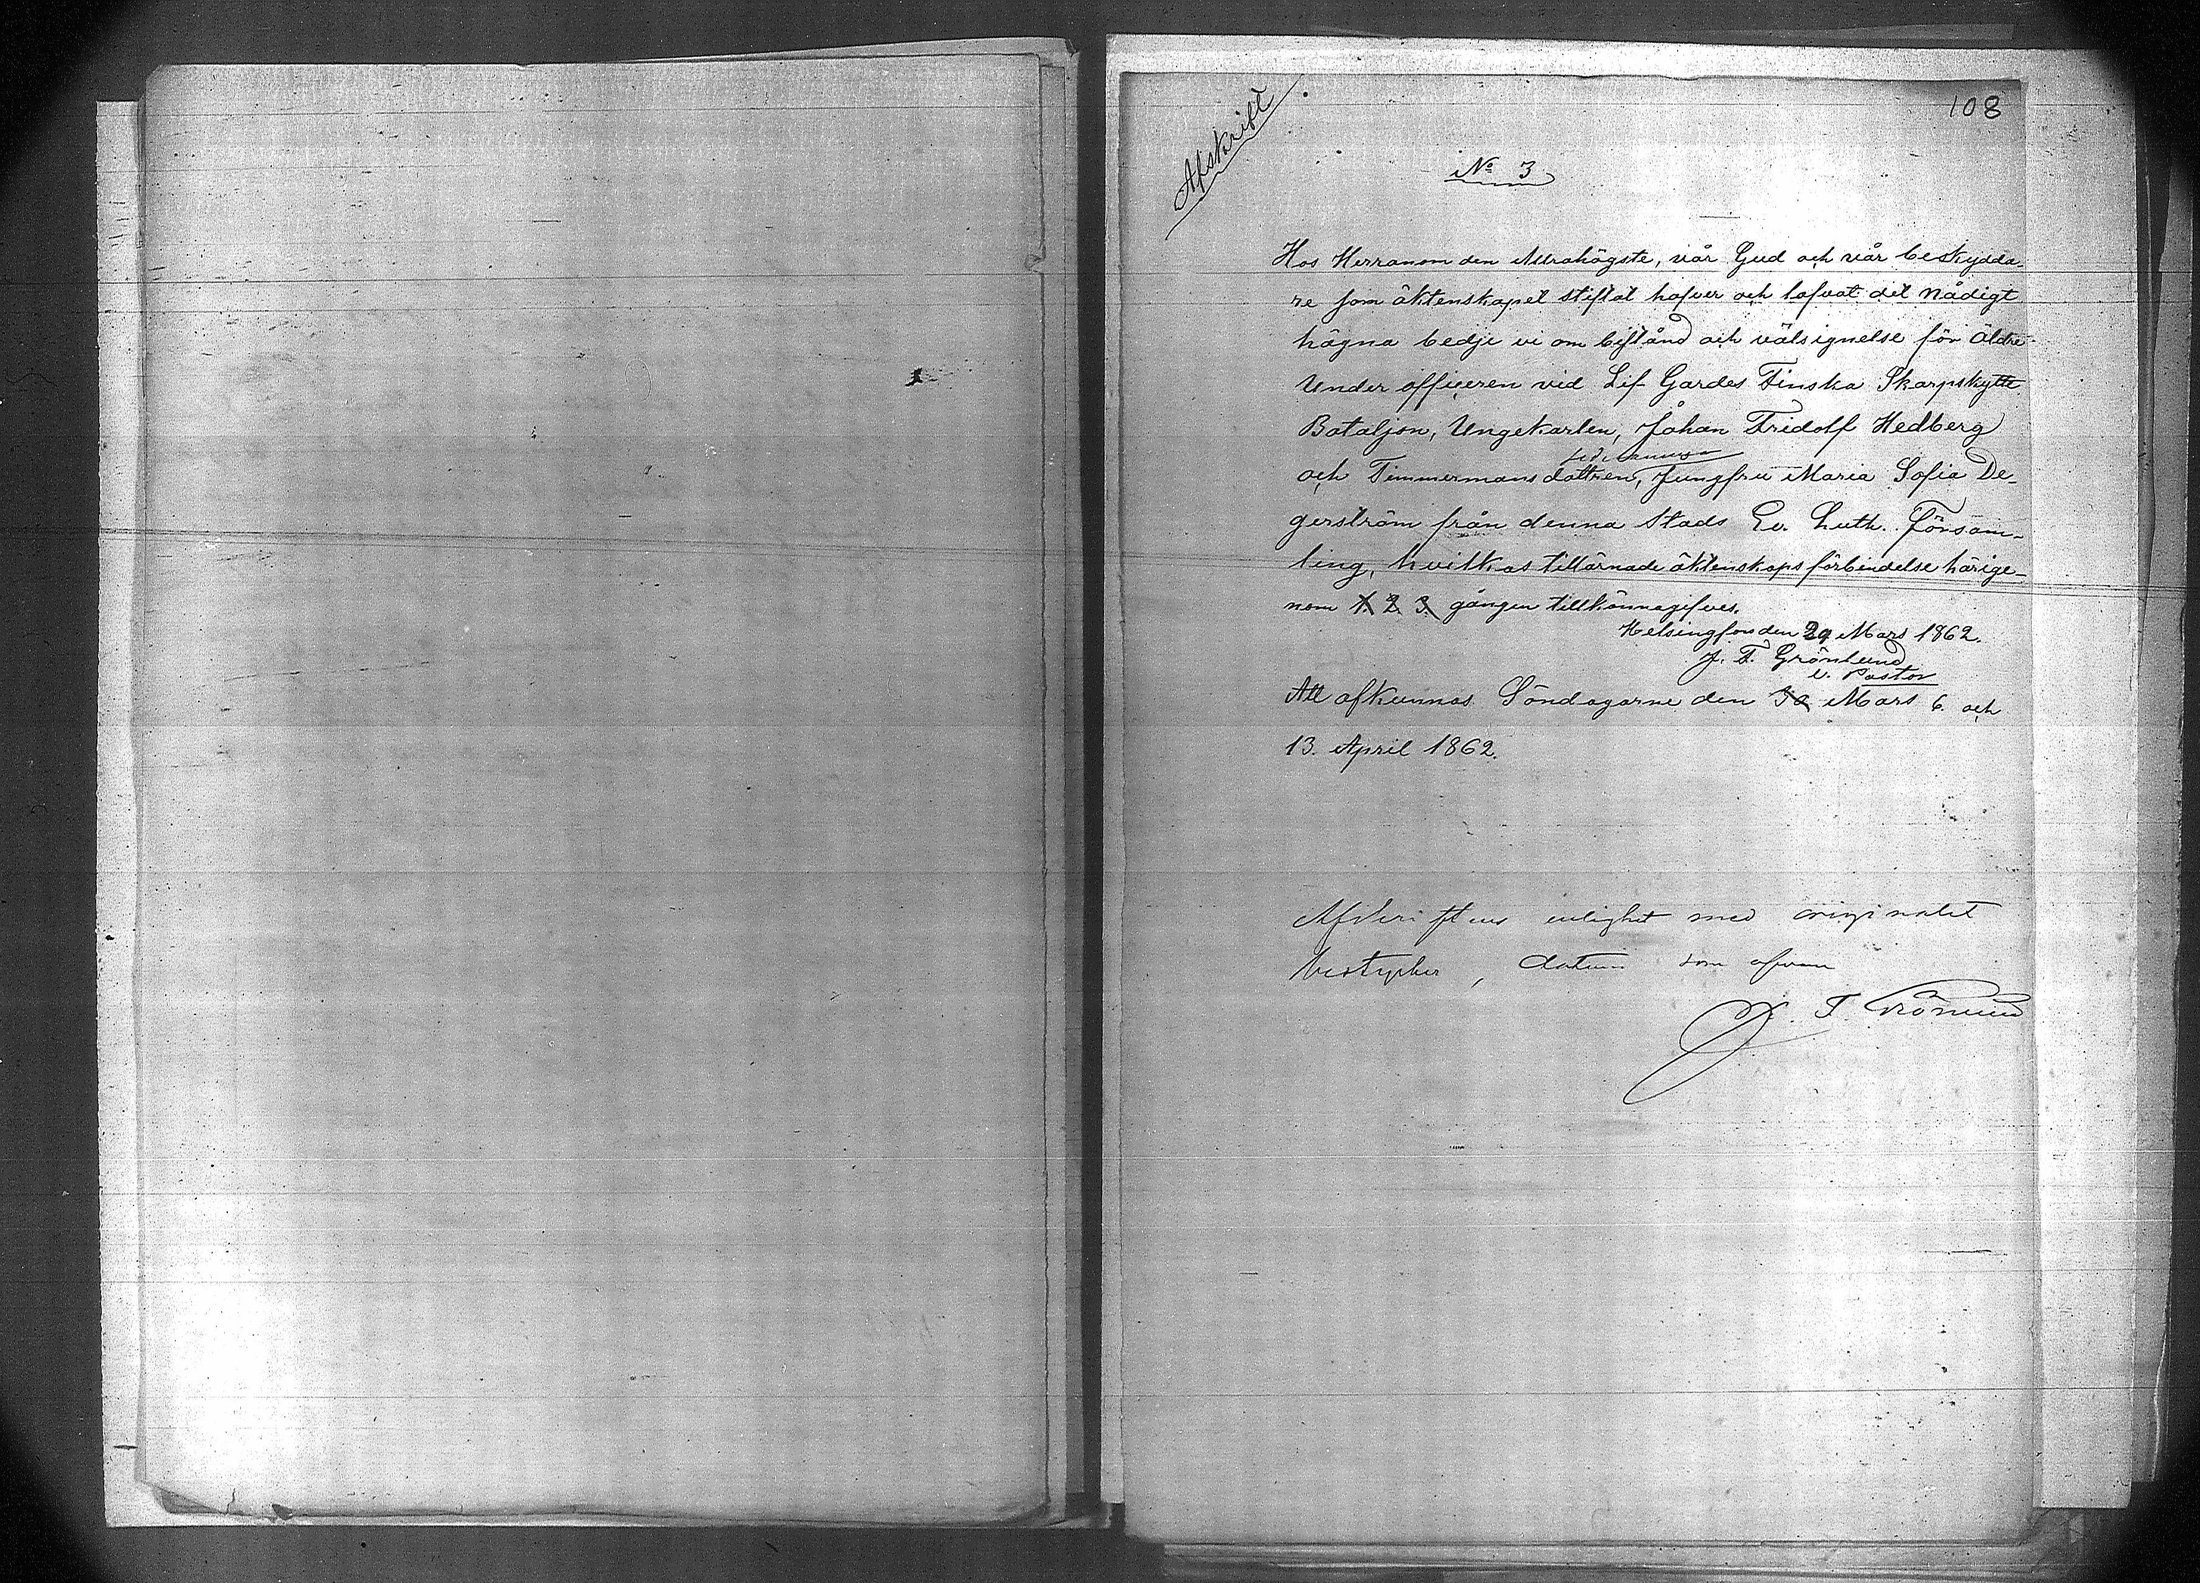 108
Afskrift
No 3
Hos Herranom den Allrahögste, vår Gud och vår beskydda-
re som äktenskapet stiftat hafver och lofvat det nådigt
hägna bedje vi om bistånd och välsignelse för Äldre
Under officeren vid Lif Gardes Finska Skarpskytte
Bataljon, Ungekarlen, Johan Fridolf Hedberg
och Timmermansdottren, Jungfru Maria Sofia De-
gerström från denna Stads Ev. Luth. Försam-
ling, hvilkas tillärnade äktenskaps förbindelse härige-
nom 1. 2. 3. gången tillkännagifves.
Helsingfors den 29 Mars 1862.
J. F. Grönlund
v. Pastor
Att afkunnas Söndagarne den 30 Mars 6. och
13. April 1862.
Afskriftens enlighet med originalet
bestyrker, datum som ofvan
J. F. Grönlund